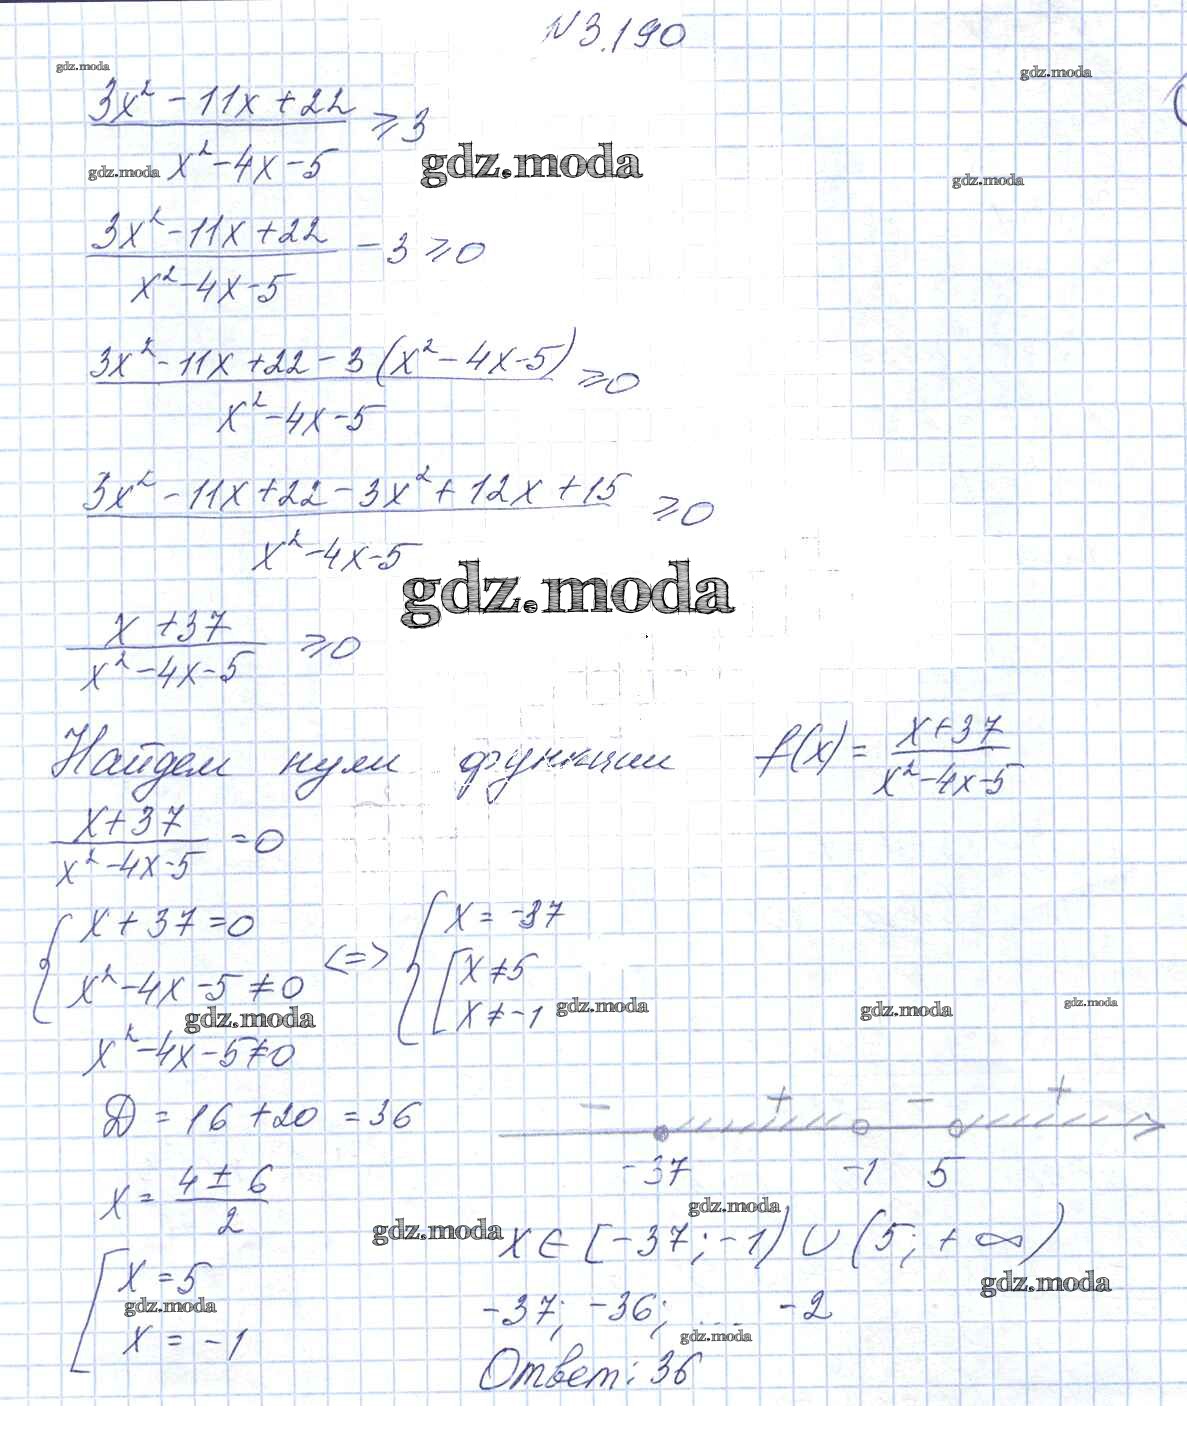 N 3.190
gdz.moda
gdz.moda
3x² - 11x + 22
≥ 3
x² - 4x - 5
gdz.moda
gdz.moda
gdz.moda
3x² - 11x + 22
- 3 ≥ 0
x² - 4x - 5
3x² - 11x + 22 - 3 (x² - 4x - 5)
≥ 0
x² - 4x - 5
3x² - 11x + 22 - 3x² + 12x + 15
≥ 0
x² - 4x - 5
gdz.moda
x + 37
≥ 0
x² - 4x - 5
Найдем нули функции f(x) = x + 37
x² - 4x - 5
x + 37
= 0
x² - 4x - 5
x + 37 = 0
<=>
x = -37
x² - 4x - 5 ≠ 0
x ≠ 5
x ≠ -1
gdz.moda
gdz.moda
gdz.moda
gdz.moda
x² - 4x - 5 ≠ 0
Д = 16 + 20 = 36
- + - +
-37 -1 5
x = 4 ± 6
2
gdz.moda
gdz.moda
x ∈ [-37; -1) ∪ (5; + ∞)
gdz.moda
x = 5
gdz.moda
x = -1
-37; -36; ... -2
gdz.moda
Ответ: 36